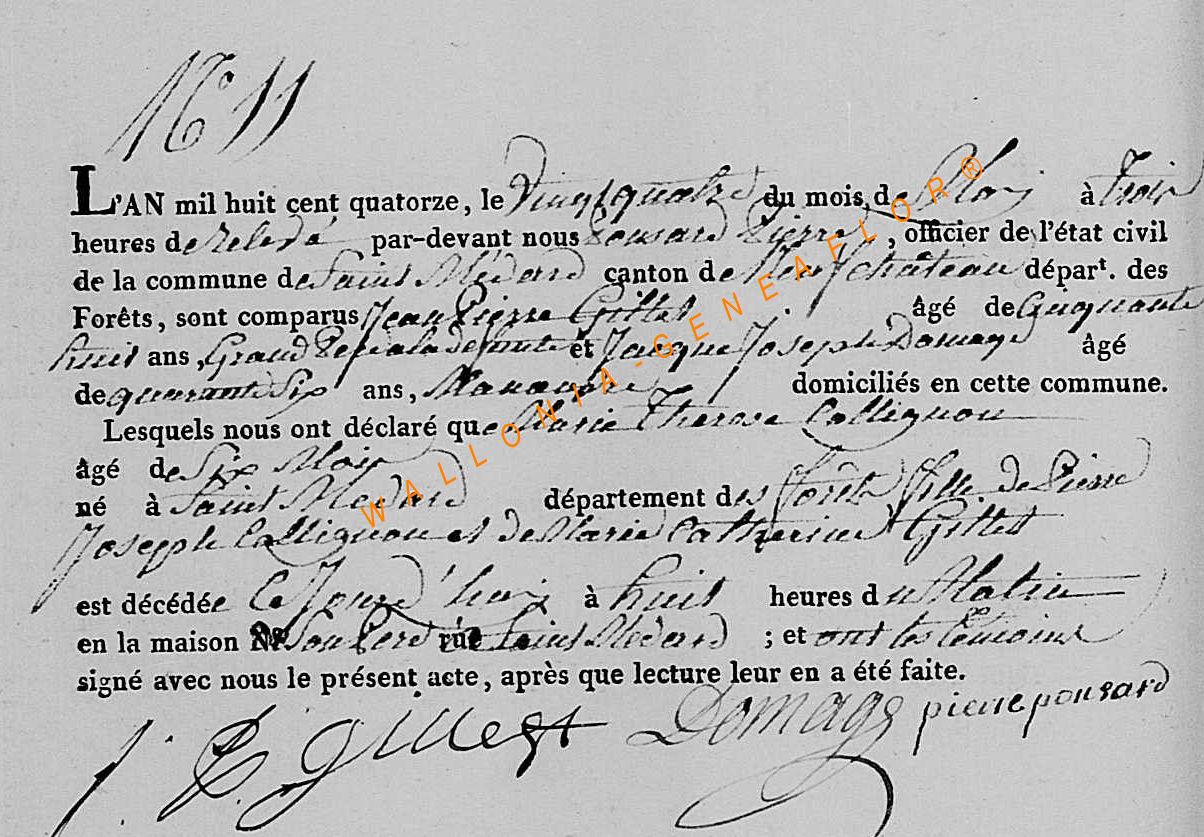 N.° 11
L'AN mil huit cent quatorze, le Vingtquatre du mois de Mars à trois
heures de relevé par-devant nous Ponsard Pierre, officier de l'état civil
de la commune de Saint Médard canton de Neufchâteau départ. des
Forêts, sont comparus Jean Pierre Gillet âgé de Cinquante
huit ans, Grand Pere a la defunte et Jacque Joseph Domage âgé
de quarante Six ans, Manœuvre domiciliés en cette commune.
Lesquels nous ont déclaré que Marie Therese Collignon
âgé de Six Mois
né à Saint Medard département des forêts fille de Pierre
Joseph Collignon et de Marie Catherine Gillet
est décédée Ce Jourd'huy à huit heures du Matin
en la maison de Son Pere rue Saint Medard ; et ont les temoins
signé avec nous le présent acte, après que lecture leur en a été faite.
J. P. gillest Domage pierre ponsard
WALLONIA-GENEAFLOR®